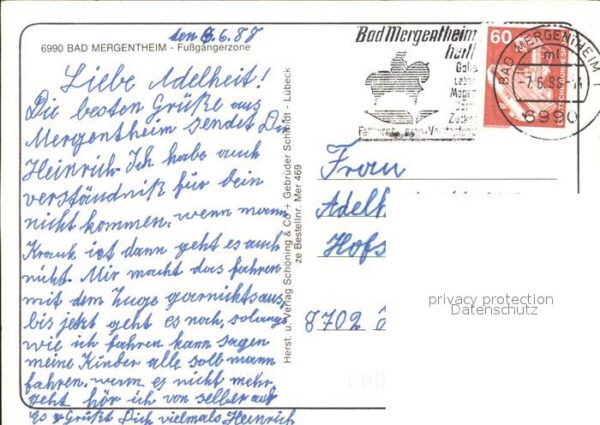 6990 BAD MERGENTHEIM - Fußgängerzone
den 6.6.88
Liebe Adelheit!
Die besten Grüße aus
Mergentheim sendet Dir
Heinrich. Ich habe auch
verständniß für dein
nicht kommen. wenn mann
Krank ist dann geht es auch
nicht. Mir macht das fahren
mit dem Zuge garnichts aus,
bis jetzt geht es noch, solange
wie ich fahren kann sagen
meine Kinder alle soll mann
fahren. wenn es nicht mehr
geht hör ich von selber auf
Es Grüßt Dich vielmals Heinrich
Herst. u. Verlag Schöning & Co + Gebrüder Schmidt - Lübeck
ze Bestellnr. Mer 469
Bad Mergentheim
heilt
Galle
Leber
Magen
Darm
Zucker
60
BAD MERGENTHEIM 1
ml
-7.6.88-
6990
Frau
Adelh
Hofs
8702
privacy protection
Datenschutz